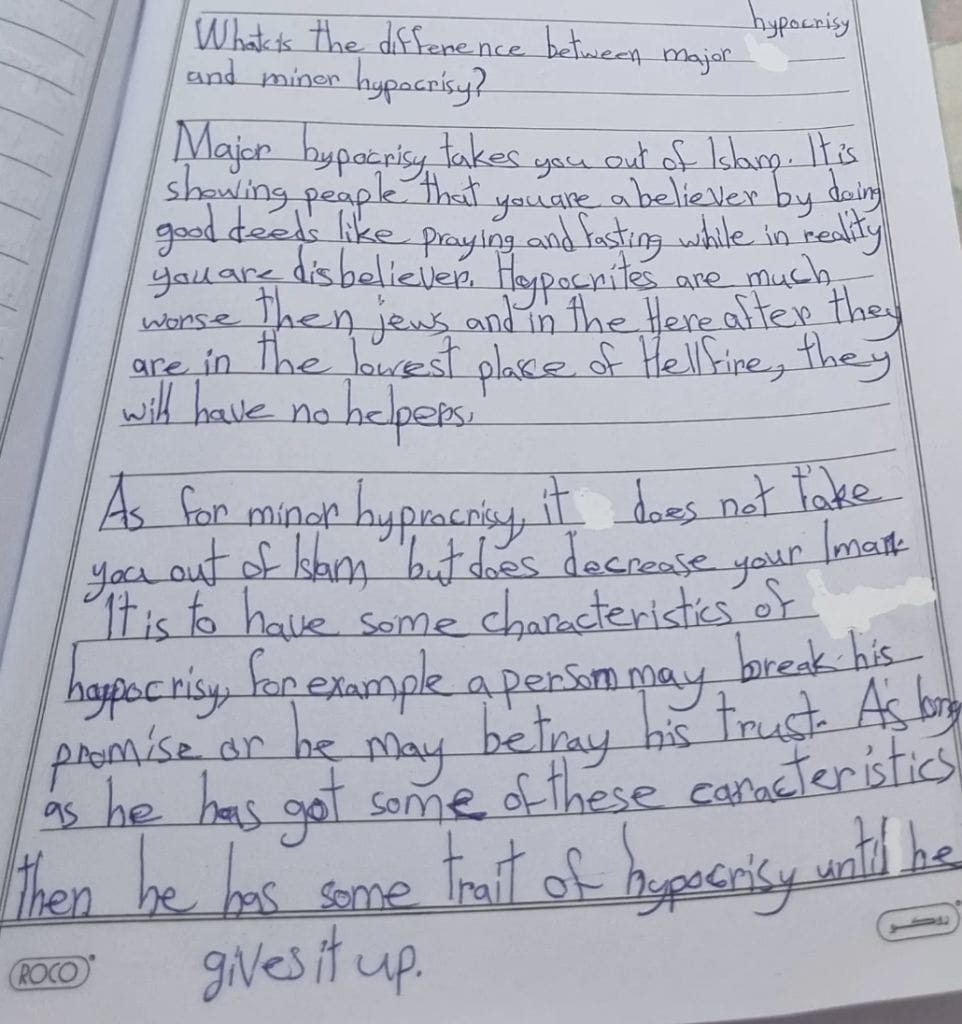 hypocrisy
What is the difference between major
and minor hypocrisy?
Major hypocrisy takes you out of Islam. It is
showing people that you are a believer by doing
good deeds like praying and fasting while in reality
you are disbeliever. Hypocrites are much
worse then jews and in the Hereafter they
are in the lowest place of Hellfire, they
will have no helpers.
As for minor hyprocrisy, it does not take
you out of Islam, but does decrease your Iman
It is to have some characteristics of
haypocrisy, for example a person may break his
promise or he may betray his trust. As long
as he has got some of these caracteristics
then he has some trait of hypocrisy until he
gives it up.
ROCO